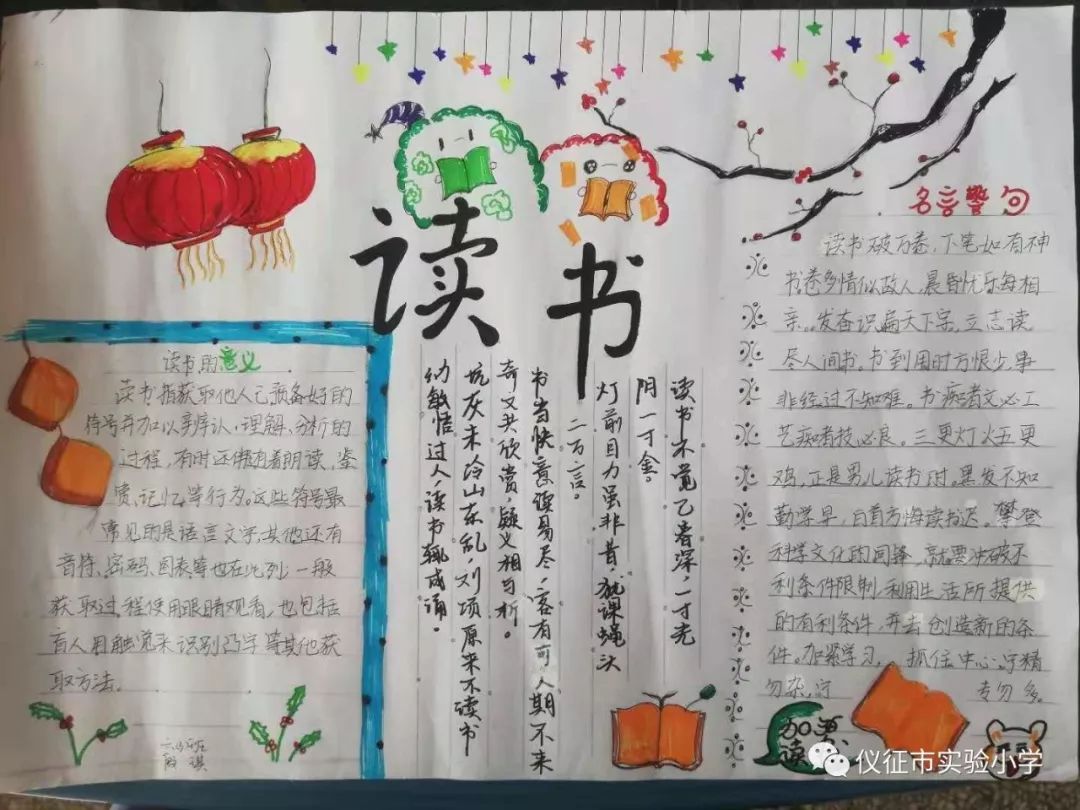 读书
读书的意义
读书指获取他人已预备好的
符号并加以辨认、理解、分析的
过程，有时还伴随着朗读、鉴
赏、记忆等行为。这些符号最
常见的是语言文字，其他还有
音符、密码、图表等也在此列。一般
获取过程使用眼睛观看，也包括
盲人用触觉来识别凸字等其他获
取方法。
读书不觉已春深，一寸光
阴一寸金。
灯前目力虽非昔，犹课蝇头
二万言。
书当快意读易尽，客有可人期不来
奇文共欣赏，疑义相与析。
坑灰未冷山东乱，刘项原来不读书
幼敏悟过人，读书辄成诵。
名言警句
读书破万卷，下笔如有神
书卷多情似故人，晨昏忧乐每相
亲。发奋识遍天下字，立志读
尽人间书。书到用时方恨少，事
非经过不知难。书痴者文必工
艺痴者技必良。三更灯火五更
鸡，正是男儿读书时，黑发不知
勤学早，白首方悔读书迟。攀登
科学文化的高峰，就要冲破不
利条件限制，利用生活所提供
的有利条件，并去创造新的条
件。加紧学习，抓住中心，宁精
勿杂，宁专勿多。
加
读
仪征市实验小学